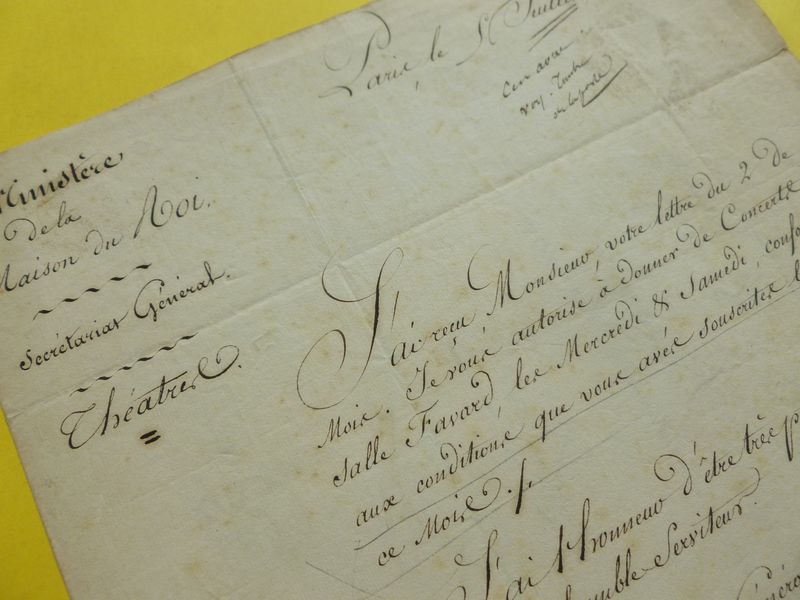 Paris, le 5 Juille
Ministère
de la
Maison du Roi.
Secrétariat Général.
Théatres.
J'ai reçu, Monsieur, votre lettre du 2 de
Mois. Je vous autorise à donner de Concerts
Salle Favard, les Mercredi & Samedi, confo
aux conditions que vous avés souscrites l
ce Mois ./.
J'ai l'honneur d'être très p
humble Serviteur.